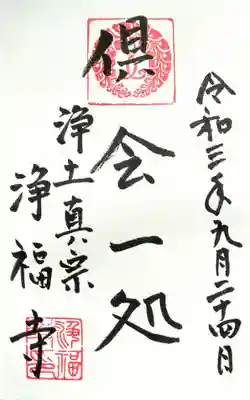 令和三年九月二十四日
倶会一処
浄土真宗
浄福寺